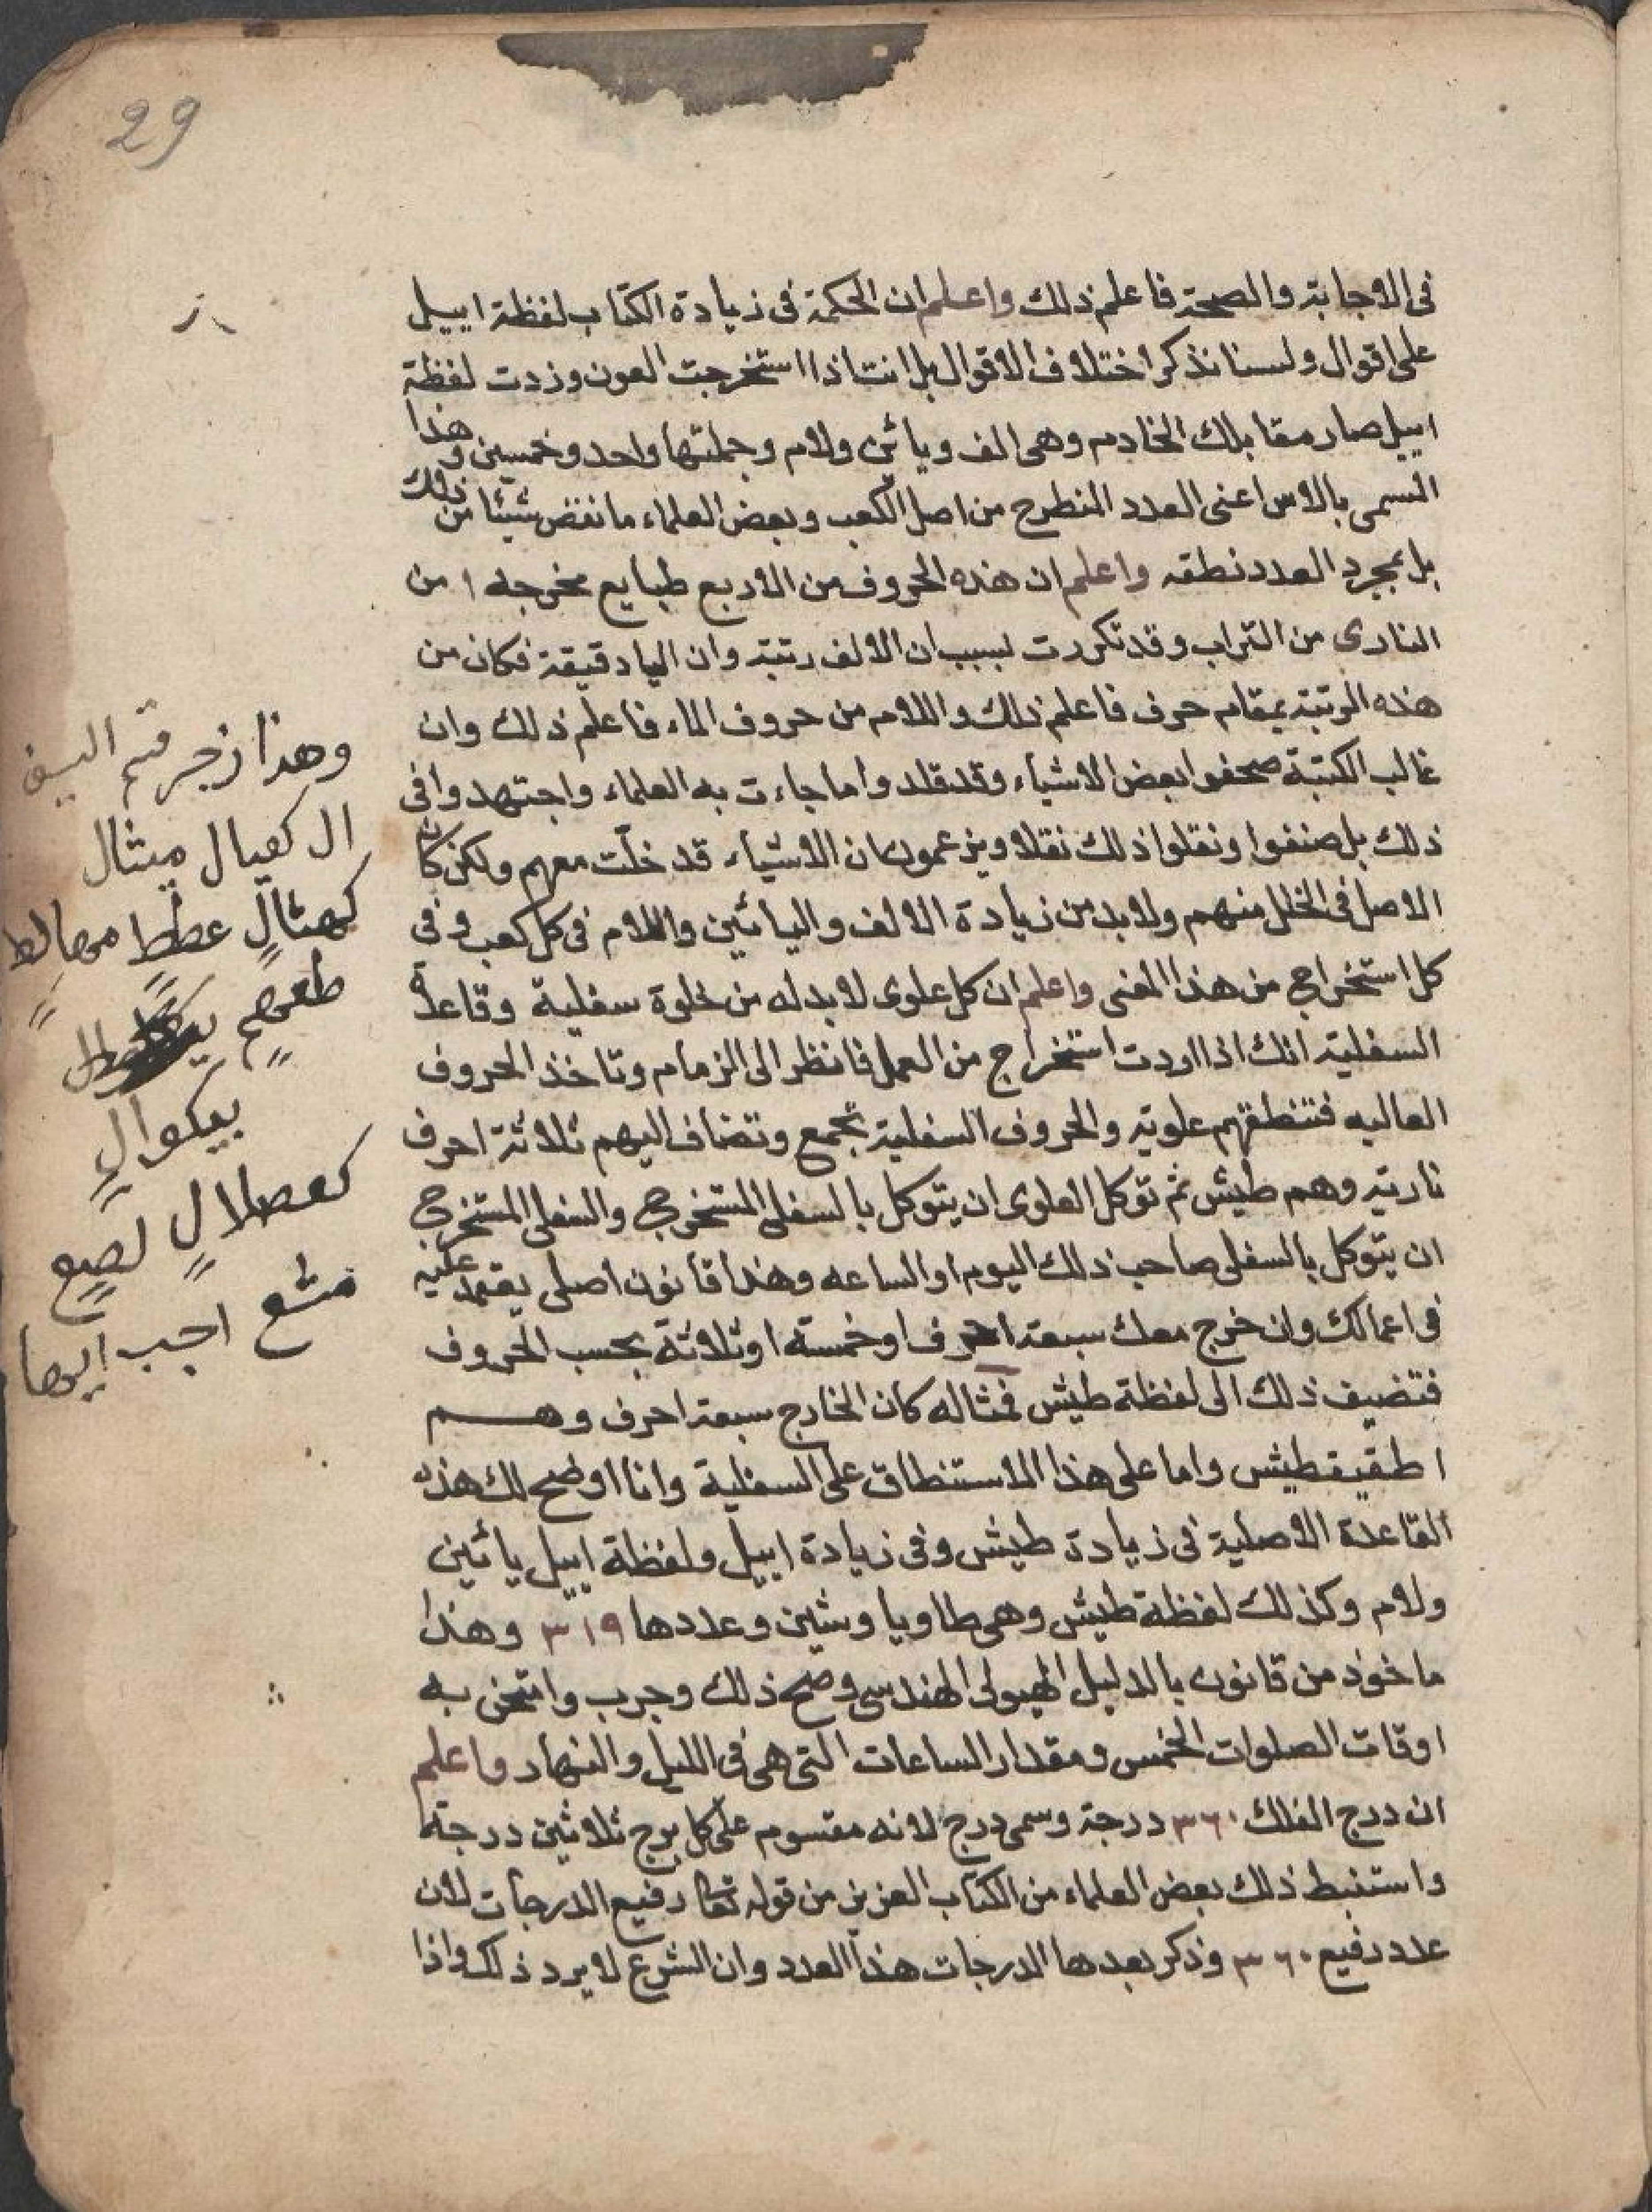 29
فى الاجابة والصحة فاعلم ذلك واعلم ان الحكمة فى زيادة الكتاب لفظة اييل
على اقوال ولسنا نذكر اختلاف الاقوال بل انت اذا استخرجت العون وزدت لفظة
اييل صار مقابلك الخادم وهى الف ويائين ولام وجملتها واحد وخمسين وهذا
المسمى بالاس اعنى العدد المنطرح من اصل الكعب وبعض العلماء ما نقض شيئا من ذلك
بل بمجرد العدد نطقه واعلم ان هذه الحروف من الاربع طبايع مخرجه ا من
النارى من التراب وقد تكررت لسبب ان الالف رتبة وان اليا دقيقة فكان من
هذه المرتبة بمقام حرف فاعلم ذلك واللام من حروف الماء فاعلم ذلك وان
غالب الكتبة صحفوا بعض الاشياء وقد قلدوا ما جاءت به العلماء واجتهدوا فى
ذلك بل صنفوا ونقلوا ذلك نقلا ويزعمون ان الاشياء قد خلّت معهم ولكن كان
الاصل فى الخلل منهم ولا بد من زيادة الالف واليائين واللام فى كل كعب وفى
كل استخراج من هذا المعنى واعلم ان كل علوى لا بد له من خلوة سفلية وقاعدة
السفلية انك اذا اردت استخراج من العمل فانظر الى الزمام وتاخذ الحروف
العاليه فتنطقهم علوية والحروف السفلية تجمع وتضاف اليهم ثلاثة احرف
نارية وهم طيش ثم توكل العلوى ان يتوكل بالسفلى المستخرج والسفلى المستخرج
ان يتوكل بالسفلى صاحب ذلك اليوم او الساعه وهذا قانون اصلى يعتمد عليه
فى اعمالك وان خرج معك سبعة احرف او خمسة او ثلاثة بحسب الحروف
فتضيف ذلك الى لفظة طيش فمثاله كان الخارج سبعة احرف وهم
اطقيقطيش واما على هذا الاستنطاق على السفلية وانا اوضح لك هذه
القاعدة الاصلية فى زيادة طيش وفى زيادة اييل ولفظة اييل يائين
ولام وكذلك لفظة طيش وهى طا ويا وشين وعددها ٣١٩ وهذا
ماخوذ من قانون بالدليل الهيولى الهندسى وصح ذلك وجرب وامتحن به
اوقات الصلوات الخمس ومقدار الساعات التى هى فى الليل والنهار واعلم
ان درج الفلك ٣٦٠ درجة وسمى درج لانه مقسوم على كل برج ثلاثين درجة
واستنبط ذلك بعض العلماء من الكتاب العزيز من قوله تعا رفيع الدرجات لان
عدد رفيع ٣٦٠ وذكر بعدها الدرجات هذا العدد وان الشرع لا يرد ذلك واذا
وهذا زجر قتم
ال كفيال ميثال
كهثال عطط
طعوهم
بيكوال
كعصلال لصيع
مشع اجب ايها